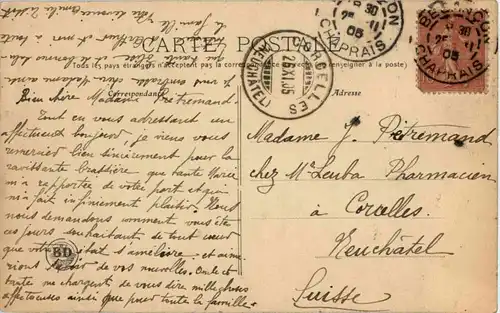 CARTE POSTALE
Tous les pays étrangers n'acceptent pas la correspondance (Se renseigner à la poste)
Correspondance
Adresse
BESANÇON
CHAPRAIS
30
25 11
05
BESANÇON
CHAPRAIS
30
25 11
05
CORCELLES
(NEUCHÂTEL)
26 XI. 05
Bien chère Madame Prêtremand.
Tout en vous adressant un
affectueux bonjour, je viens vous
remercier bien sincèrement pour la
ravissante brassière que tante Marie
m'a rapportée de votre part et qui
m'a fait infiniment plaisir. Nous
nous demandons comment vous ête
ces jours souhaitant de tout cœur
que votre état s'améliore et aime
rions avoir de vos nouvelles. Oncle et
tante me chargent de vous dire mille choses
affectueuses ainsi que pour toute la famille.
BD
Madame J. Prêtremand
chez Mr Leuba Pharmacien
à Corcelles
Neuchâtel
Suisse